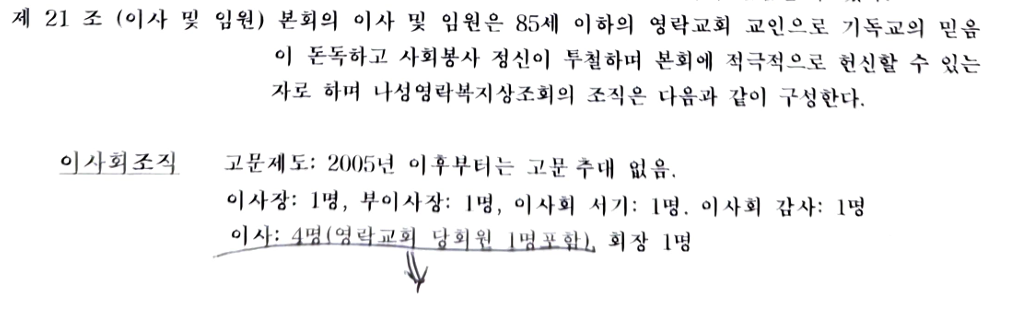 제 21 조 (이사 및 임원) 본회의 이사 및 임원은 85세 이하의 영락교회 교인으로 기독교의 믿음
이 돈독하고 사회봉사 정신이 투철하며 본회에 적극적으로 헌신할 수 있는
자로 하며 나성영락복지상조회의 조직은 다음과 같이 구성한다.
이사회조직 고문제도: 2005년 이후부터는 고문 추대 없음.
이사장: 1명, 부이사장: 1명, 이사회 서기: 1명. 이사회 감사: 1명
이사: 4명(영락교회 당회원 1명포함), 회장 1명